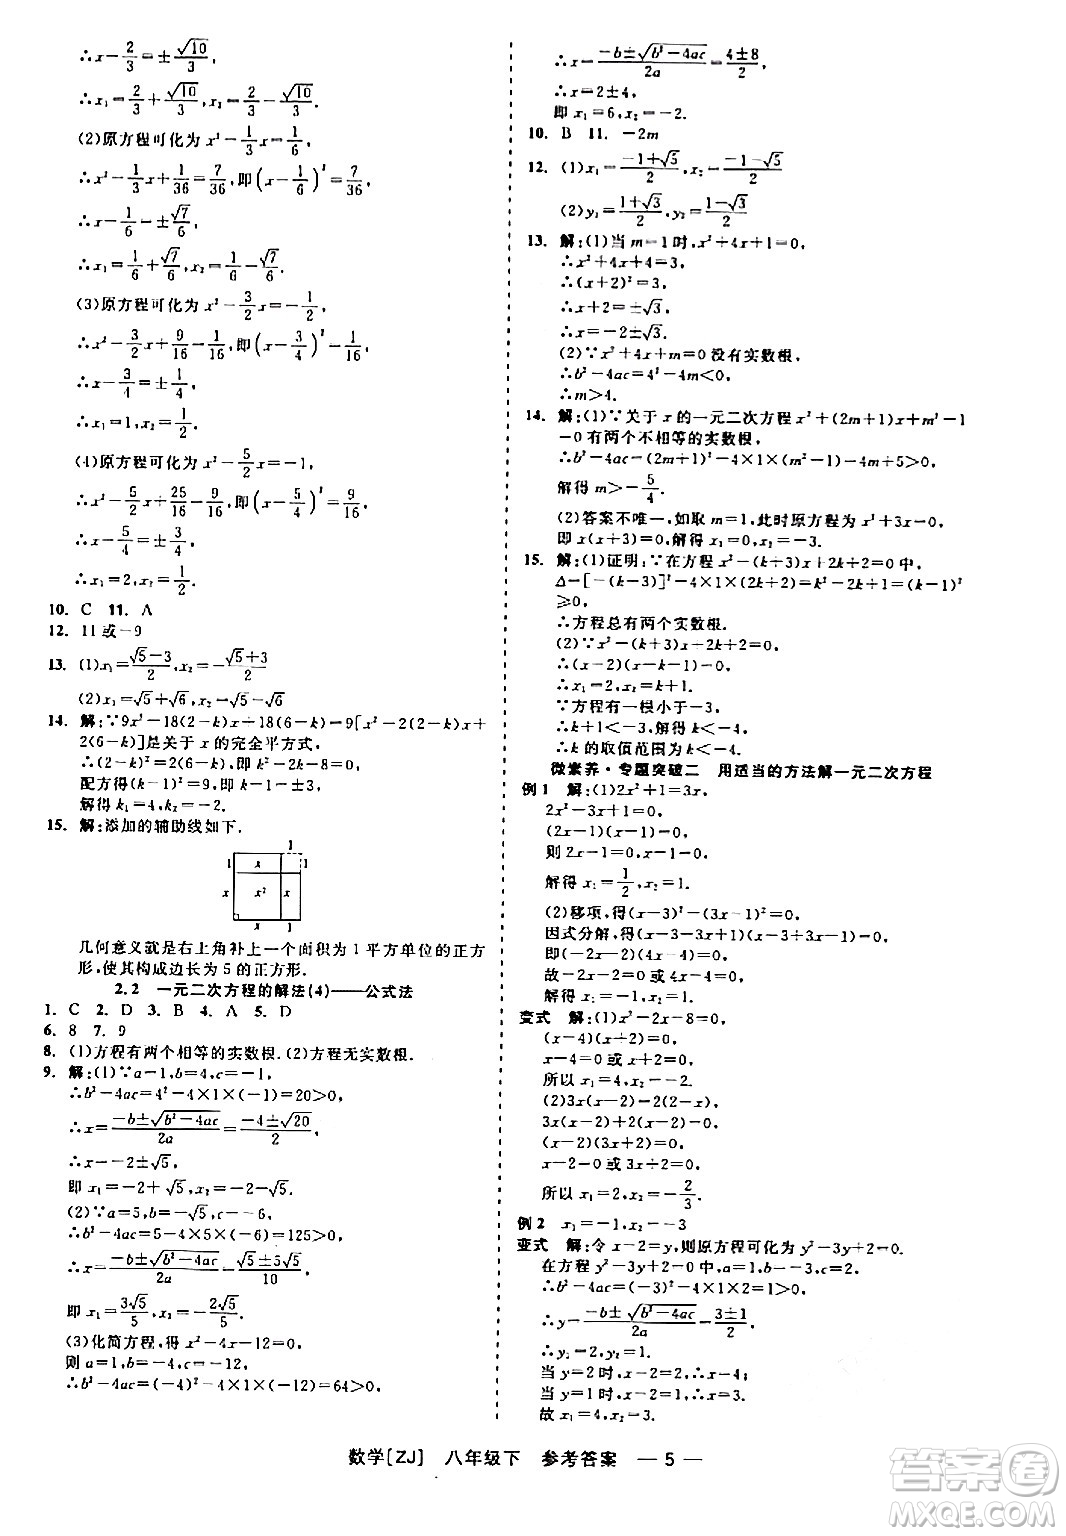 ∴x-2/3=±√10/3,
∴x₁=2/3+√10/3,x₂=2/3-√10/3.
(2)原方程可化为 x²-1/3x=1/6,
∴x²-1/3x+1/36=7/36,即(x-1/6)²=7/36,
∴x-1/6=±√7/6,
∴x₁=1/6+√7/6,x₂=1/6-√7/6.
(3)原方程可化为 x²-3/2x=-1/2,
∴x²-3/2x+9/16=1/16,即(x-3/4)²=1/16,
∴x-3/4=±1/4,
∴x₁=1,x₂=1/2.
(4)原方程可化为 x²-5/2x=-1,
∴x²-5/2x+25/16=9/16,即(x-5/4)²=9/16,
∴x-5/4=±3/4,
∴x₁=2,x₂=1/2.
10. C 11. A
12. 11或-9
13. (1)x₁=(√5-3)/2,x₂=-(√5+3)/2
(2)x₁=√5+√6,x₂=√5-√6
14. 解:∵9x²-18(2-k)x+18(6-k)=9[x²-2(2-k)x+
2(6-k)]是关于 x 的完全平方式,
∴(2-k)²=2(6-k),
配方得(k-1)²=9,
解得 k₁=4,k₂=-2.
15. 解:添加的辅助线如下.
1
1 x 1
x x² x
x 1
几何意义就是右上角补上一个面积为 1 平方单位的正方
形,使其构成边长为 5 的正方形.
2.2 一元二次方程的解法(4)——公式法
1. C 2. D 3. B 4. A 5. D
6. 8 7. 9
8. (1)方程有两个相等的实数根.(2)方程无实数根.
9. 解:(1)∵a=1,b=4,c=-1,
∴b²-4ac=4²-4×1×(-1)=20>0,
∴x=(-b±√(b²-4ac))/2a=(-4±√20)/2,
∴x=-2±√5,
即 x₁=-2+√5,x₂=-2-√5.
(2)∵a=5,b=-√5,c=-6,
∴b²-4ac=5-4×5×(-6)=125>0,
∴x=(-b±√(b²-4ac))/2a=(√5±5√5)/10,
即 x₁=3√5/5,x₂=-2√5/5.
(3)化简方程,得 x²-4x-12=0,
则 a=1,b=-4,c=-12,
∴b²-4ac=(-4)²-4×1×(-12)=64>0,
∴x=(-b±√(b²-4ac))/2a=(4±8)/2,
∴x=2±4,
即 x₁=6,x₂=-2.
10. B 11. -2m
12. (1)x₁=(-1+√5)/2,x₂=(-1-√5)/2
(2)y₁=(1+√3)/2,y₂=(1-√3)/2
13. 解:(1)当 m=1 时,x²+4x+1=0,
∴x²+4x+4=3,
∴(x+2)²=3,
∴x+2=±√3,
∴x=-2±√3.
(2)∵x²+4x+m=0 没有实数根,
∴b²-4ac=4²-4m<0,
∴m>4.
14. 解:(1)∵关于 x 的一元二次方程 x²+(2m+1)x+m²-1
=0 有两个不相等的实数根,
∴b²-4ac=(2m+1)²-4×1×(m²-1)=4m+5>0,
解得 m>-5/4.
(2)答案不唯一,如取 m=1,此时原方程为 x²+3x=0,
即 x(x+3)=0,解得 x₁=0,x₂=-3.
15. 解:(1)证明:∵在方程 x²-(k+3)x+2k+2=0 中,
Δ=[-(k+3)]²-4×1×(2k+2)=k²-2k+1=(k-1)²
≥0,
∴方程总有两个实数根.
(2)∵x²-(k+3)x+2k+2=0,
∴(x-2)(x-k-1)=0,
∴x₁=2,x₂=k+1.
∵方程有一根小于-3,
∴k+1<-3,解得 k<-4,
∴k 的取值范围为 k<-4.
微素养·专题突破二 用适当的方法解一元二次方程
例 1 解:(1)2x²+1=3x,
2x²-3x+1=0,
(2x-1)(x-1)=0,
则 2x-1=0,x-1=0,
解得 x₁=1/2,x₂=1.
(2)移项,得(x-3)²-(3x-1)²=0,
因式分解,得(x-3-3x+1)(x-3+3x-1)=0,
(-2x-2)(4x-4)=0,
故-2x-2=0 或 4x-4=0,
解得 x₁=-1,x₂=1.
变式 解:(1)x²-2x-8=0,
(x-4)(x+2)=0,
x-4=0 或 x+2=0,
所以 x₁=4,x₂=-2.
(2)3x(x-2)=2(2-x),
3x(x-2)+2(x-2)=0,
(x-2)(3x+2)=0,
x-2=0 或 3x+2=0,
所以 x₁=2,x₂=-2/3.
例 2 x₁=-1,x₂=-3
变式 解:令 x-2=y,则原方程可化为 y²-3y+2=0.
在方程 y²-3y+2=0 中,a=1,b=-3,c=2,
∴b²-4ac=(-3)²-4×1×2=1>0,
∴y=(-b±√(b²-4ac))/2a=(3±1)/2,
∴y₁=2,y₂=1.
当 y=2 时,x-2=2,x=4;
当 y=1 时,x-2=1,x=3.
故 x₁=4,x₂=3.
数学[ZJ] 八年级下 参考答案 — 5 —
答案圈
MXQE.COM